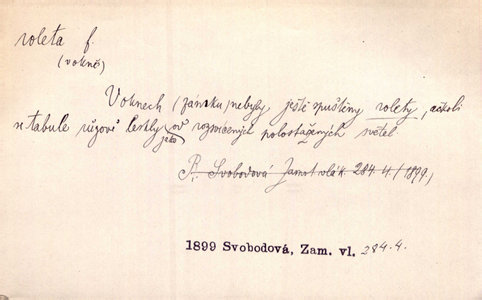 roleta f.
(vokně)
V oknech (zámku) nebyly ještě spuštěny rolety, ačkoli
tabule růžově leskly jako od rozsvícených polostažených světel
R. Svobodová Zamot. vlák. 284.4./1899,
1899 Svobodová, Zam. vl. 284.4.